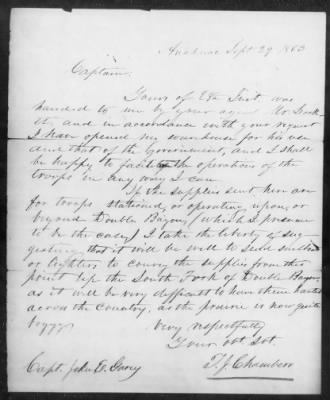 Anahuac Sept 29 1863
Captain
Yours of 27th Inst. was
handed to me by your agent Mr
and in accordance with your request
I have opened my warehouse for his use
and that of the Government, and I shall
be happy to facilitate the operations of the
troops in any way I can.
If the supplies sent him are
for troops stationed, or operating, upon, or
beyond Double Bayou, (which I presume
to be the case,) I take the liberty of sug-
gesting, that it will be well to send
or lighters to convey the supplies from this
point up the South Fork of Double Bayou,
as it will be very difficult to have them hauled
across the country, as the prairie is now quite
boggy.
Very respectfully
Your obt Svt.
T. J. Chambers
Capt. John